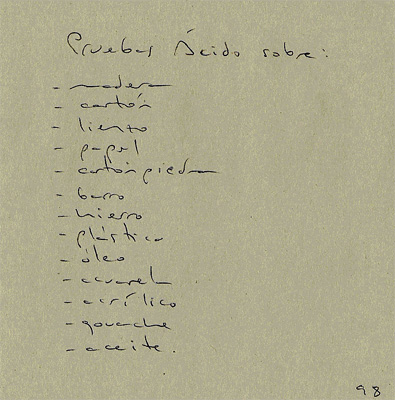 Pruebas Ácido sobre:
- madera
- cartón
- lienzo
- papel
- cartón piedra
- barro
- hierro
- plástico
- óleo
- acuarela
- acrílico
- gouache
- aceite.
98